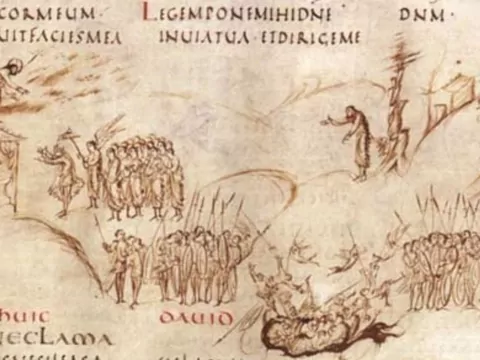 CORMEUM·
UITFACIESMEA
LEGEMPONEMIHIDNE
INUIATUA·ETDIRIGEME
DNM·
HUIC DAUID
NECLAMA